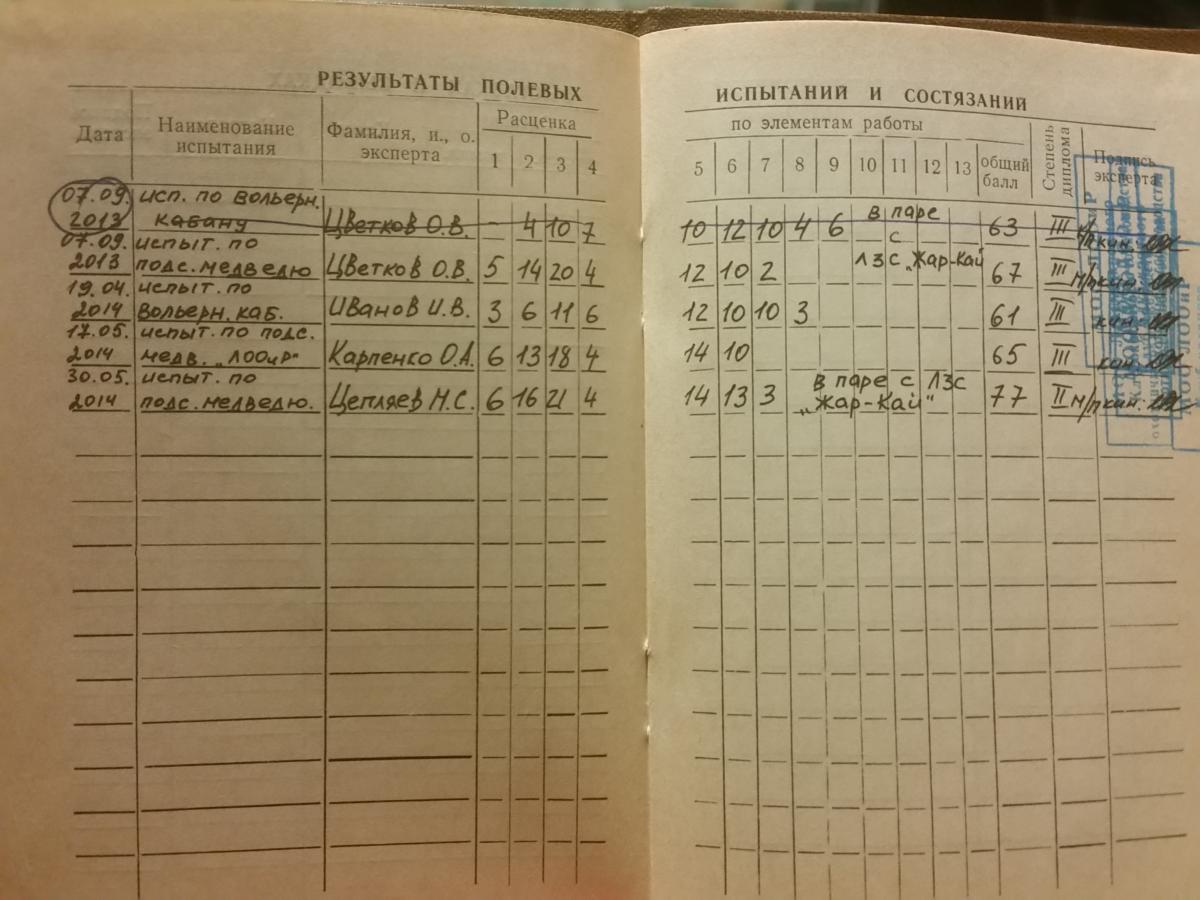 РЕЗУЛЬТАТЫ ПОЛЕВЫХ ИСПЫТАНИЙ И СОСТЯЗАНИЙ
Дата Наименование испытания Фамилия, и., о. эксперта Расценка по элементам работы Степень диплома Подпись эксперта
1 2 3 4 5 6 7 8 9 10 11 12 13 общий балл
07.09. исп. по вольерн. в паре
2013 кабану Цветков О.В. – 4 10 7 10 12 10 4 6 с 63 III м/п кин.
07.09. испыт. по ЛЗС „Жар-Кай
2013 подс. медведю Цветков О.В. 5 14 20 4 12 10 2 67 III м/п кин.
19.04. испыт. по
2014 вольерн. каб. Иванов И.В. 3 6 11 6 12 10 10 3 61 III кин.
17.05. испыт. по подс.
2014 медв. „ЛООиР" Карпенко О.А. 6 13 18 4 14 10 65 III кин.
30.05. испыт. по в паре с ЛЗС
2014 подс. медведю. Цепляев М.С. 6 16 21 4 14 13 3 „Жар-Кай" 77 II м/п кин.